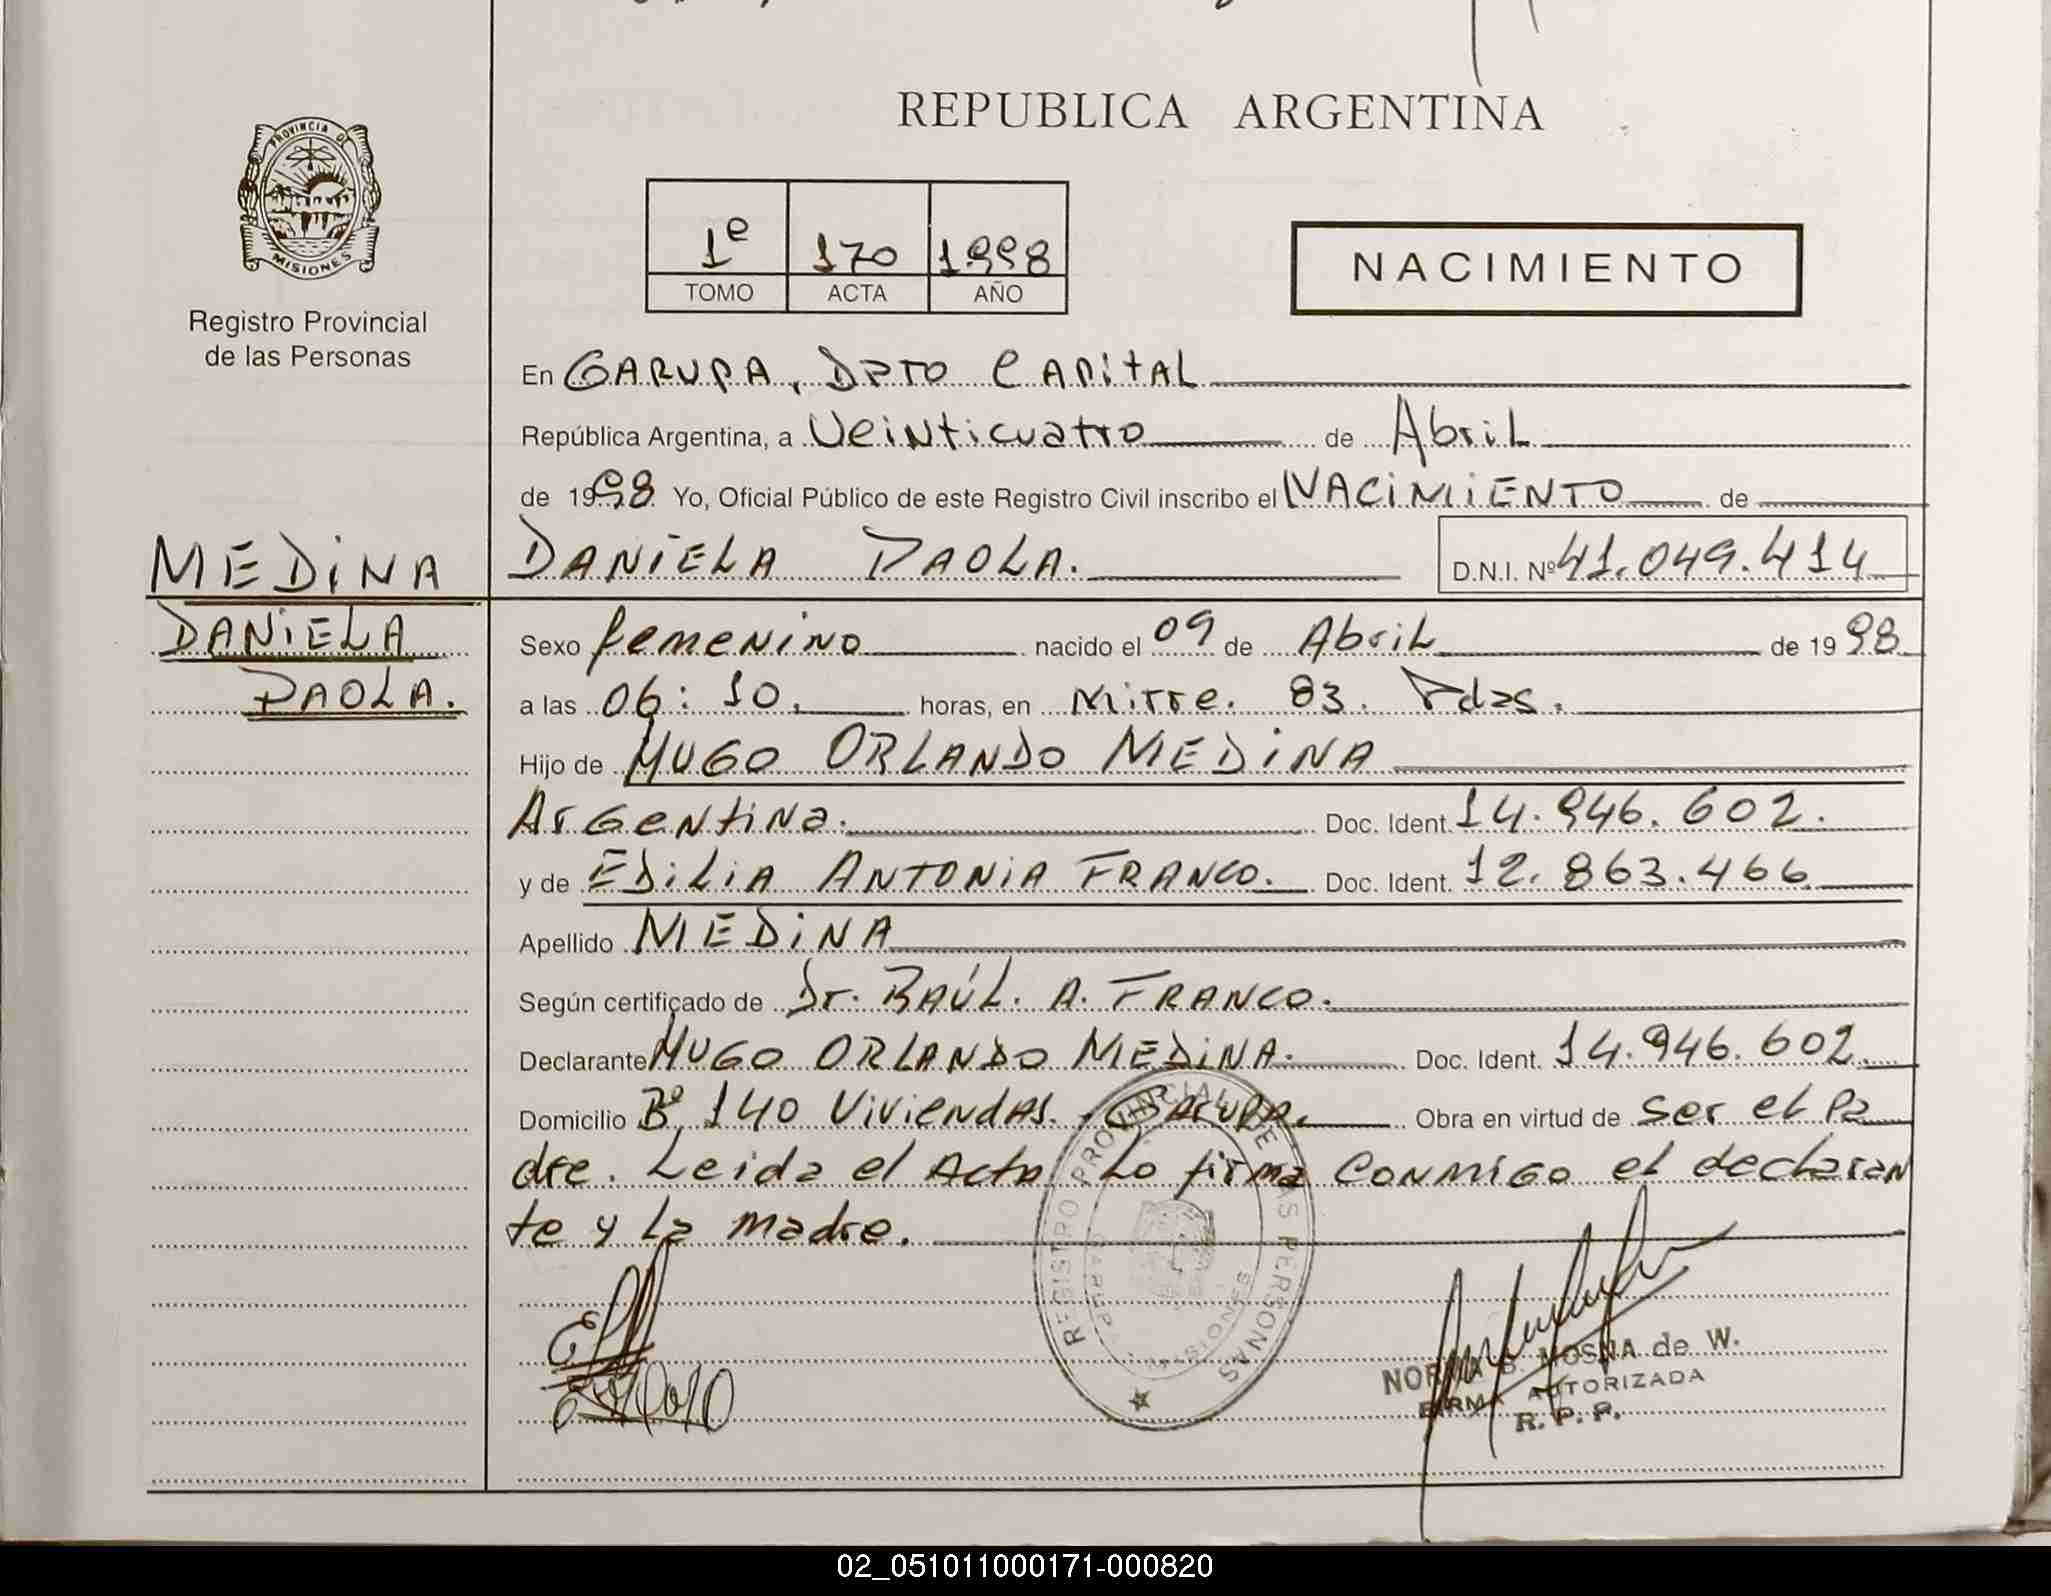 REPUBLICA ARGENTINA
PROVINCIA DE
MISIONES
Registro Provincial
de las Personas
1º 170 1998
TOMO ACTA AÑO
NACIMIENTO
En GARUPA, DPTO CAPITAL
República Argentina, a Veinticuatro de Abril
de 1998 Yo, Oficial Público de este Registro Civil inscribo el NACIMIENTO de
MEDINA
DANIELA
PAOLA.
DANIELA PAOLA. D.N.I. Nº 41.049.414
Sexo femenino nacido el 09 de Abril de 1998
a las 06:10. horas, en Mitre. 83. Pdas.
Hijo de HUGO ORLANDO MEDINA
Argentina. Doc. Ident. 14.946.602.
y de EDILIA ANTONIA FRANCO. Doc. Ident. 12.863.466
Apellido MEDINA
Según certificado de Dr. RAÚL. A. FRANCO.
Declarante HUGO ORLANDO MEDINA. Doc. Ident. 14.946.602.
Domicilio Bº 140 Viviendas. GARUPA. Obra en virtud de ser el Pa
dre. Leida el Acta Lo firma conmigo el declaran
te y La madre.
REGISTRO PROVINCIAL DE LAS PERSONAS
GARUPA
MISIONES
NORMA B. MOSNA de W.
FIRMA AUTORIZADA
R. P. P.
02_051011000171-000820